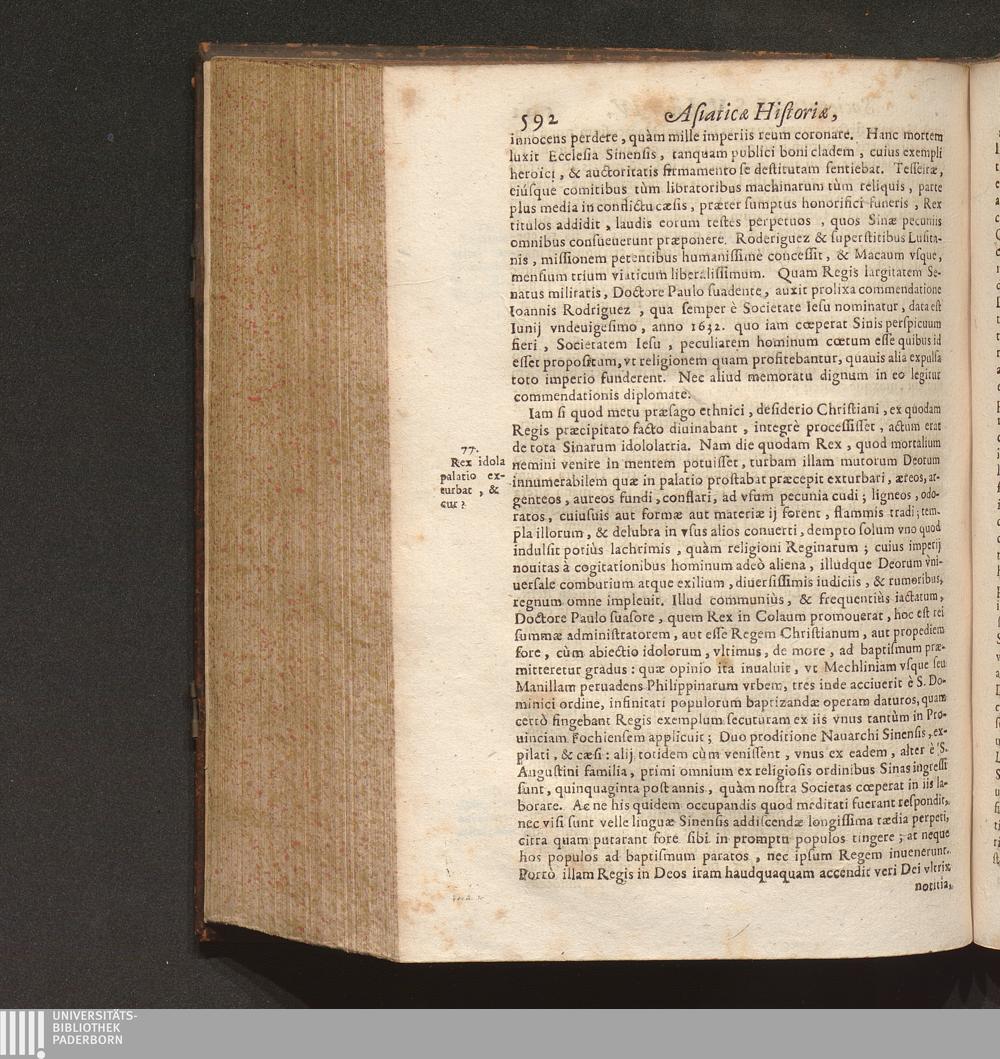 592 Asiaticæ Historiæ,
innocens perdere, quàm mille imperiis reum coronare. Hanc mortem
luxit Ecclesia Sinensis, tanquam publici boni cladem, cuius exempli
heroici, & auctoritatis firmamento se destitutam sentiebat. Tesseiræ,
eiúsque comitibus tùm libratoribus machinarum tùm reliquis, parte
plus media in conflictu cæsis, præter sumptus honorifici funeris, Rex
titulos addidit, laudis eorum testes perpetuos, quos Sinæ pecuniis
omnibus consueuerunt præponere. Roderiguez & superstitibus Lusita-
nis, missionem petentibus humanissimè concessit, & Macaum vsque,
mensium trium viaticum liberalissimum. Quam Regis largitatem Se-
natus militaris, Doctore Paulo suadente, auxit prolixa commendatione
Ioannis Rodriguez, qua semper è Societate Iesu nominatur, data est
Iunij vndeuigesimo, anno 1632. quo iam cœperat Sinis perspicuum
fieri, Societatem Iesu, peculiarem hominum cœtum esse quibus id
esset propositum, vt religionem quam profitebantur, quauis alia expulsa
toto imperio funderent. Nec aliud memoratu dignum in eo legitur
commendationis diplomate.
Iam si quod metu præsago ethnici, desiderio Christiani, ex quodam
Regis præcipitato facto diuinabant, integrè processisset, actum erat
de tota Sinarum idololatria. Nam die quodam Rex, quod mortalium
77.
Rex idola
palatio ex-
turbat, &
cur?
nemini venire in mentem potuisset, turbam illam mutorum Deorum
innumerabilem quæ in palatio prostabat præcepit exturbari, æreos, ar-
genteos, aureos fundi, conflari, ad vsum pecunia cudi; ligneos, odo-
ratos, cuiusuis aut formæ aut materiæ ij forent, flammis tradi; tem-
pla illorum, & delubra in vsus alios conuerti, dempto solum vno quod
indulsit potiùs lachrimis, quàm religioni Reginarum; cuius imperij
nouitas à cogitationibus hominum adeò aliena, illudque Deorum vni-
uersale comburium atque exilium, diuersissimis iudiciis, & rumoribus,
regnum omne impleuit. Illud communiùs, & frequentiùs iactatum,
Doctore Paulo suasore, quem Rex in Colaum promouerat, hoc est rei
summæ administratorem, aut esse Regem Christianum, aut propediem
fore, cùm abiectio idolorum, vltimus, de more, ad baptismum præ-
mitteretur gradus: quæ opinio ita inualuit, vt Mechliniam vsque seu
Manillam peruadens Philippinarum vrbem, tres inde acciuerit è S. Do-
minici ordine, infinitati populorum baptizandæ operam daturos, quam
certò fingebant Regis exemplum secuturam ex iis vnus tantùm in Pro-
uinciam Fochiensem applicuit; Duo proditione Nauarchi Sinensis, ex-
pilati, & cæsi: alij totidem cùm venissent, vnus ex eadem, alter è S.
Augustini familia, primi omnium ex religiosis ordinibus Sinas ingressi
sunt, quinquaginta post annis, quàm nostra Societas cœperat in iis la-
borare. Ac ne his quidem occupandis quod meditati fuerant respondit,
nec visi sunt velle linguæ Sinensis addiscendæ longissima tædia perpeti,
citra quam putarant fore sibi in promptu populos tingere; at neque
hos populos ad baptismum paratos, nec ipsum Regem inuenerunt.
Porrò illam Regis in Deos iram haudquaquam accendit veri Dei vltrix
notitia,
UNIVERSITÄTS-
BIBLIOTHEK
PADERBORN